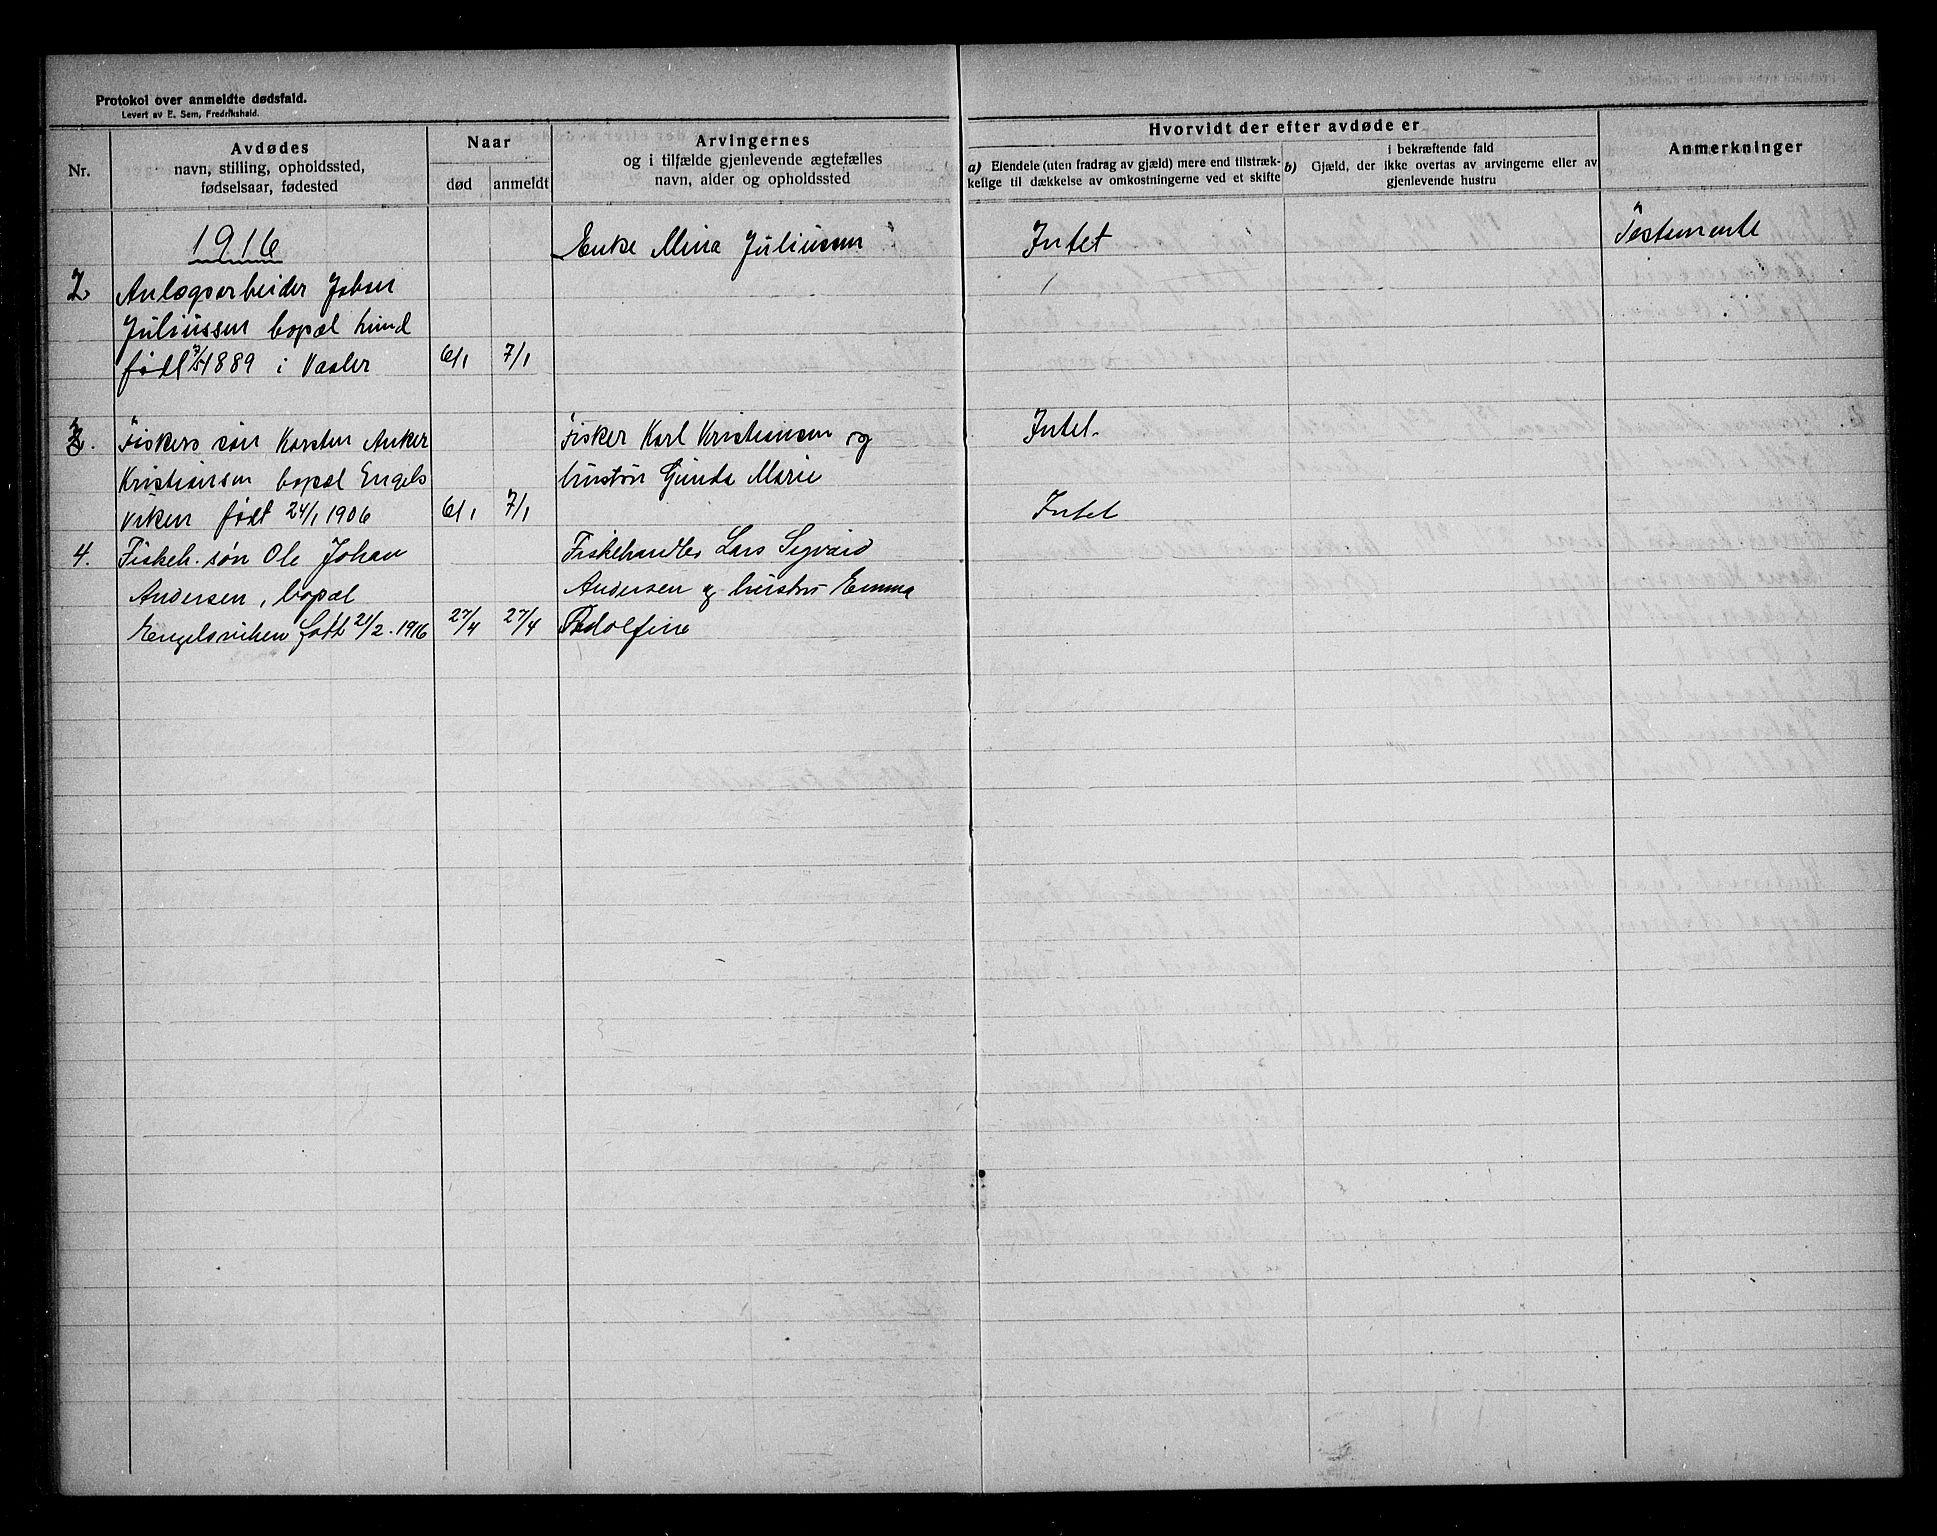 Protokol over anmeldte dødsfald.
Levert av E. Sem, Fredrikshald.
Nr.
Avdødes
navn, stilling, opholdssted,
fødselsaar, fødested
Naar
død
anmeldt
Arvingernes
og i tilfælde gjenlevende ægtefælles
navn, alder og opholdssted
Hvorvidt der efter avdøde er
a) Eiendele (uten fradrag av gjæld) mere end tilstræk-
kelige til dækkelse av omkostningerne ved et skifte
i bekræftende fald
b) Gjæld, der ikke overtas av arvingerne eller av
gjenlevende hustru
Anmerkninger
1916
Enke Mina Juliussen
Intet
Testamente
2 Anlægsarbeider Johan
Juliussen bopæl Lund
født 1889 i Vaaler 6/1 7/1
3. Fiskers søn Karsten Anker
Kristiansen bopæl Engels
viken født 24/1 1906 6/1 7/1
Fisker Karl Kristiansen og
hustru Gunda Marie
Intet.
4. Fiskeh. søn Ole Johan
Andersen, bopæl
Engelsviken født 21/2. 1916 27/4 27/4
Fiskehandler Lars Sigvard
Andersen og hustru Emma
Adolfine
Intet